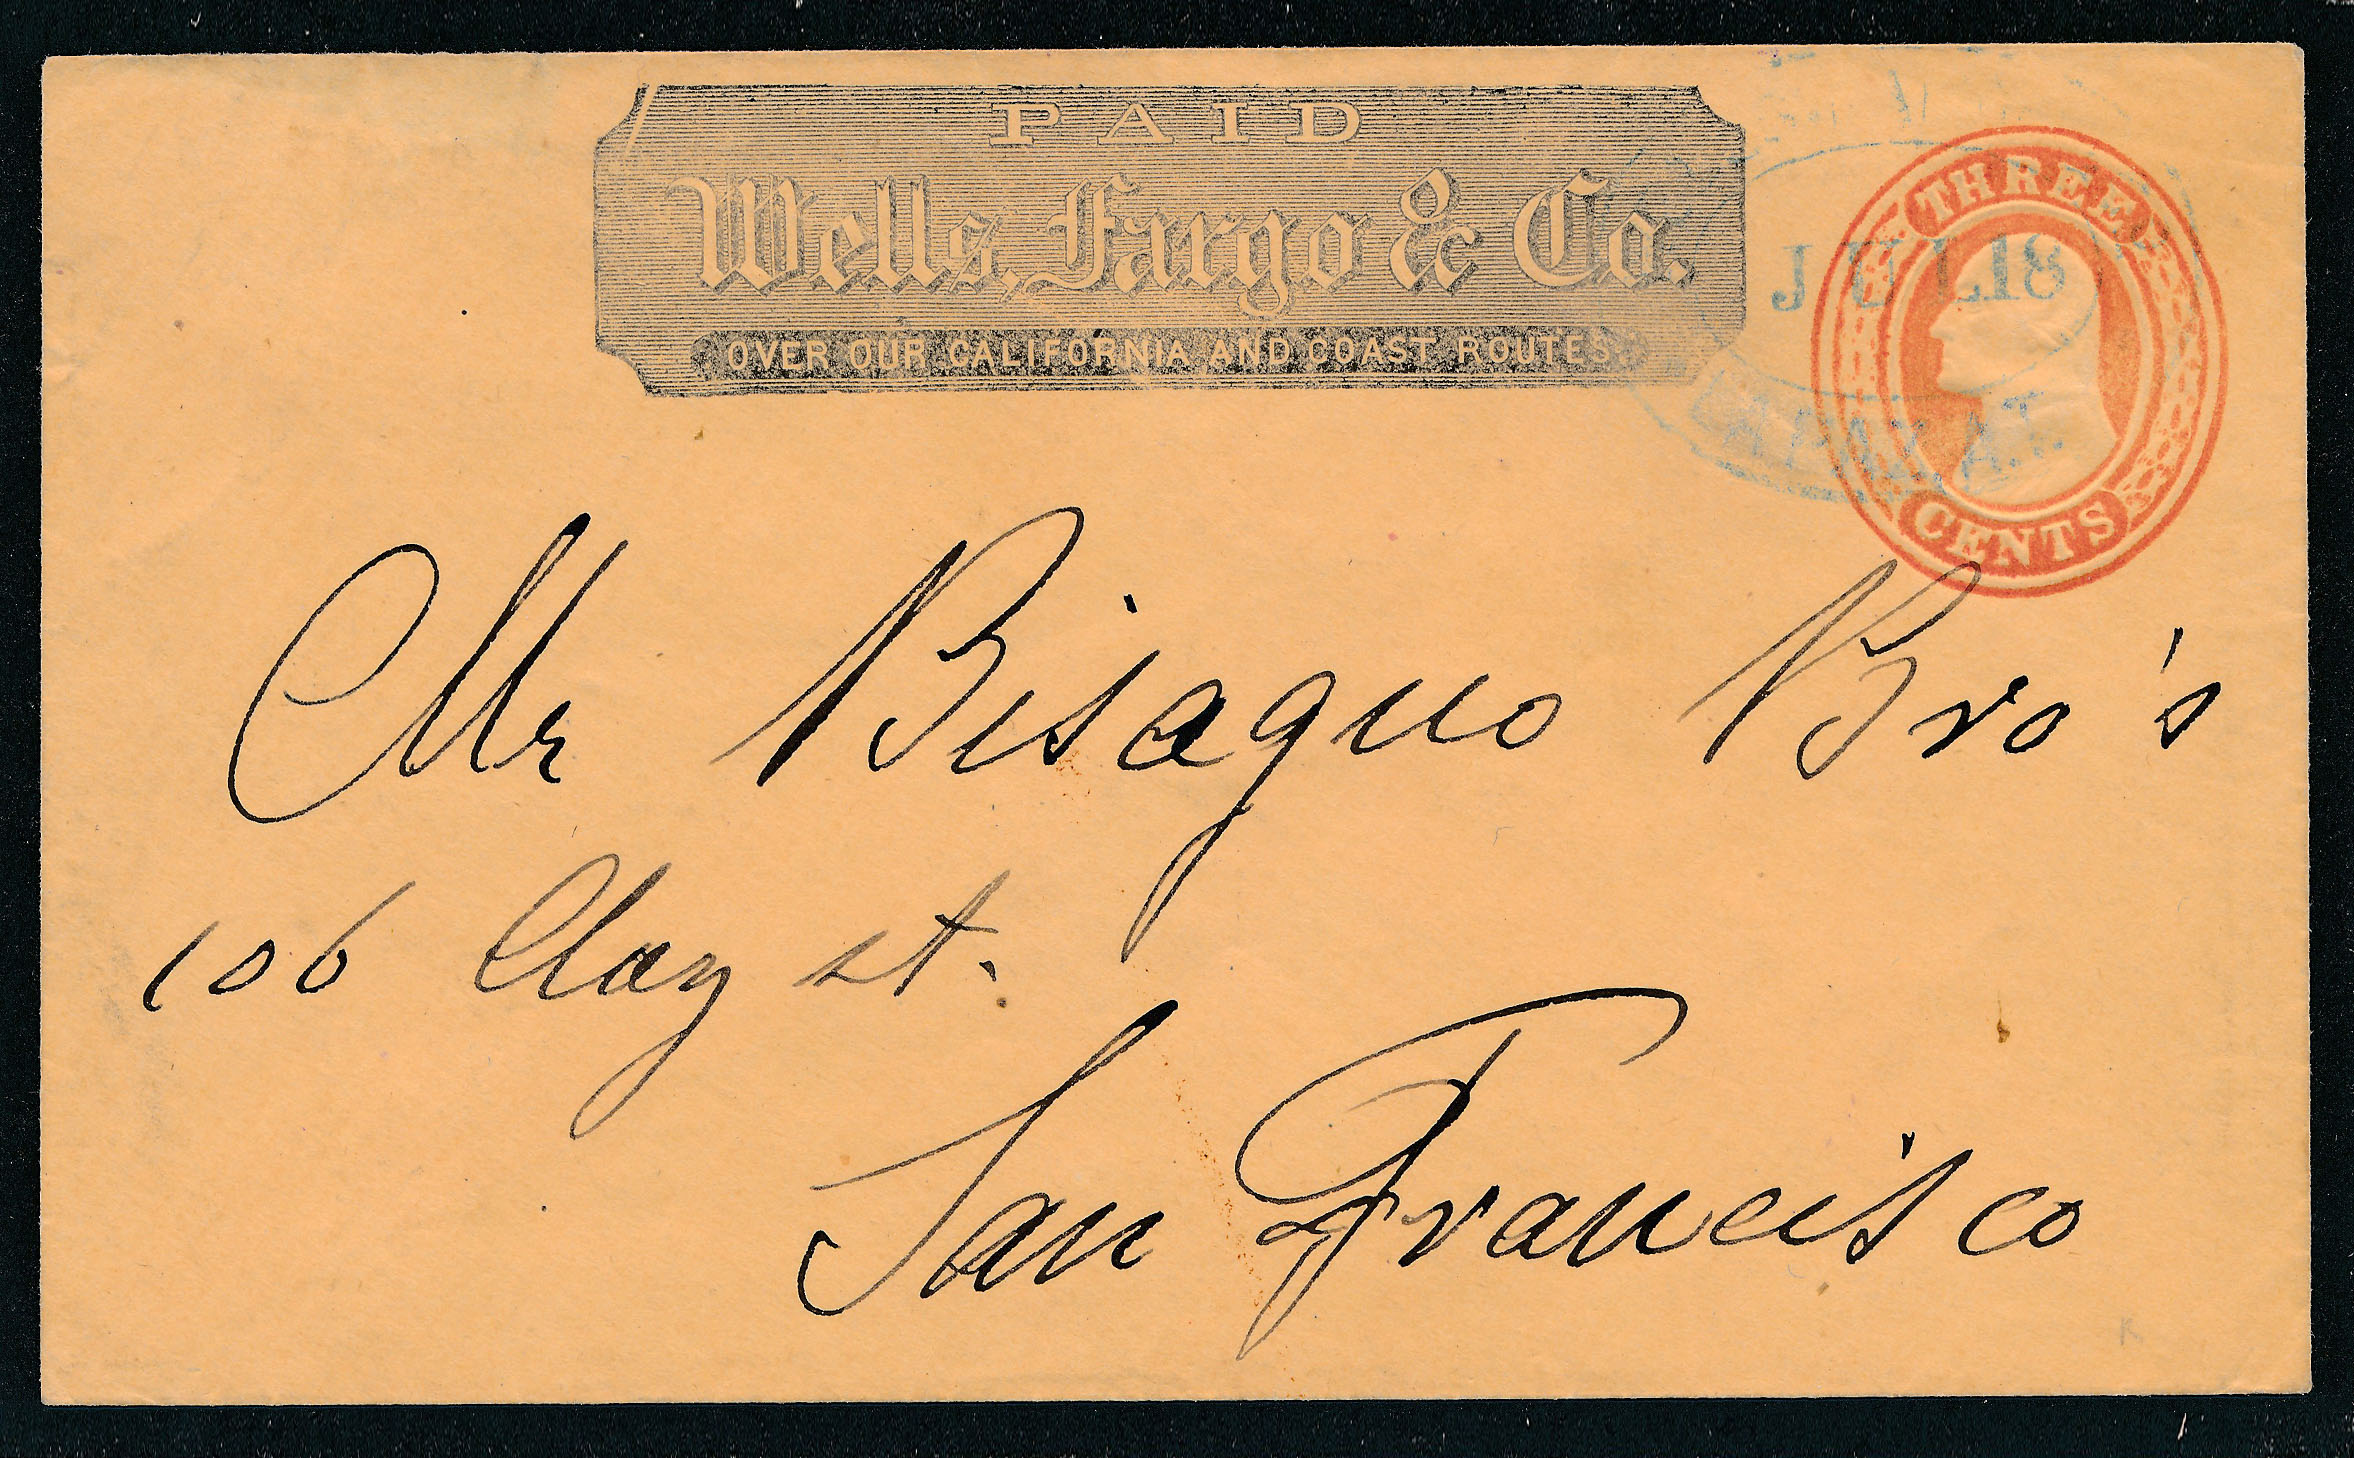 PAID
Wells, Fargo & Co.
OVER OUR CALIFORNIA AND COAST ROUTES.
THREE
CENTS
JUL 18
Mr Bisagno Bro's
106 Clay st.
San Francisco